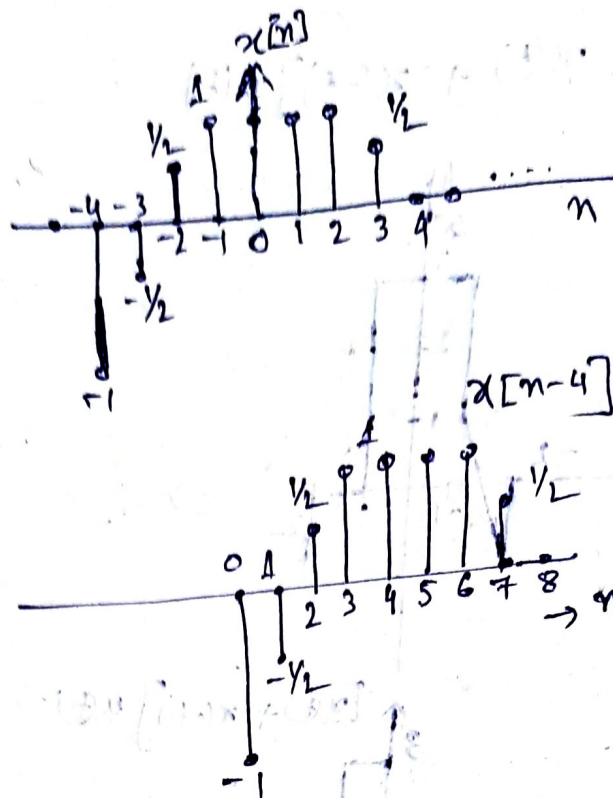 x[n]
1
1/2
1/2
....
-4 -3 -2 -1 0 1 2 3 4 n
-1/2
-1
x[n-4]
1
1/2
1/2
0 1 2 3 4 5 6 7 8
→
-1/2
-1